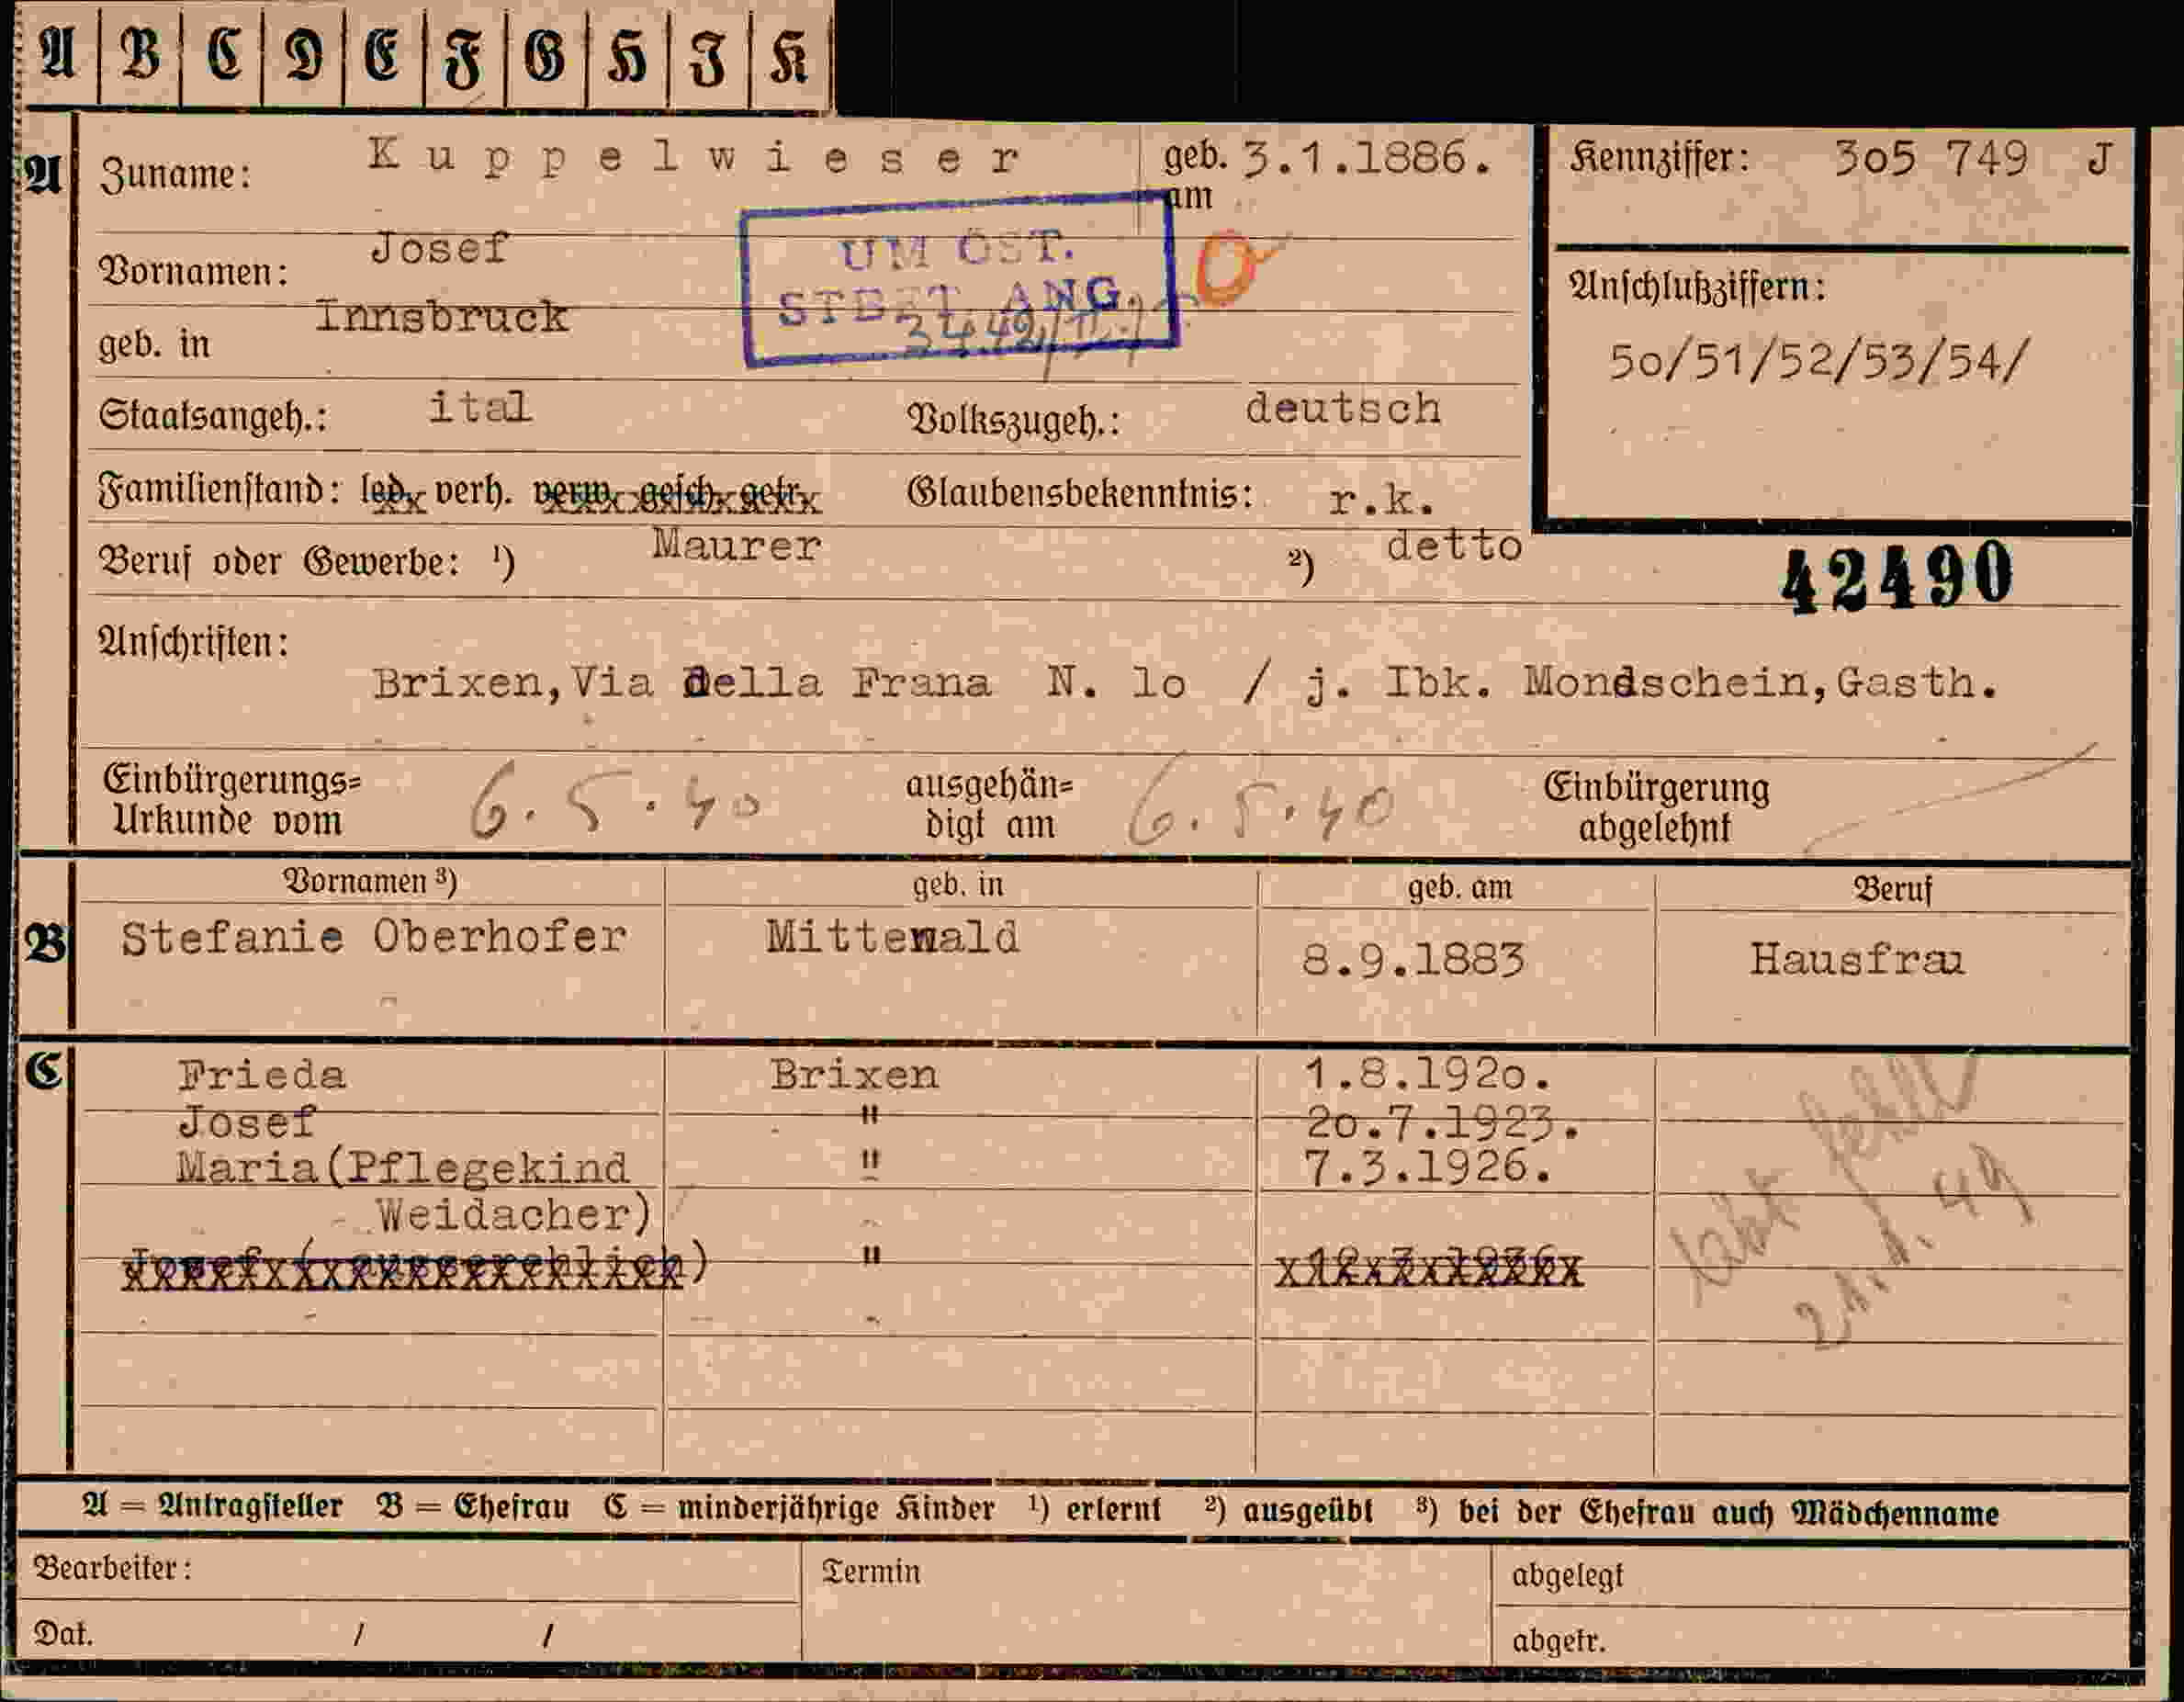 A B C D E F G H I K
A Zuname: Kuppelwieser geb. am 3.1.1886. Kennziffer: 3o5 749 J
Vornamen: Josef
UM ÖST.
STBGT. ANG.
geb. in Innsbruck
Anschlußziffern:
5o/51/52/53/54/
Staatsangeh.: ital Volkszugeh.: deutsch
Familienstand: led. verh. verw. gesch. getr. Glaubensbekenntnis: r.k.
Beruf oder Gewerbe: ¹) Maurer ²) detto
42490
Anschriften:
Brixen,Via della Frana N. 1o / j. Ibk. Mondschein,Gasth.
Einbürgerungs=
Urkunde vom 6.5.40 ausgehän=
digt am 6.5.40 Einbürgerung
abgelehnt
Vornamen ³) geb. in geb. am Beruf
B Stefanie Oberhofer Mittewald 8.9.1883 Hausfrau
C Frieda Brixen 1.8.192o.
Josef " 2o.7.1923.
Maria(Pflegekind " 7.3.1926.
Weidacher)
Josef ( ausserehlich) "
21.1.49
A = Antragsteller B = Ehefrau C = minderjährige Kinder ¹) erlernt ²) ausgeübt ³) bei der Ehefrau auch Mädchenname
Bearbeiter: Termin abgelegt
Dat. / / abgetr.